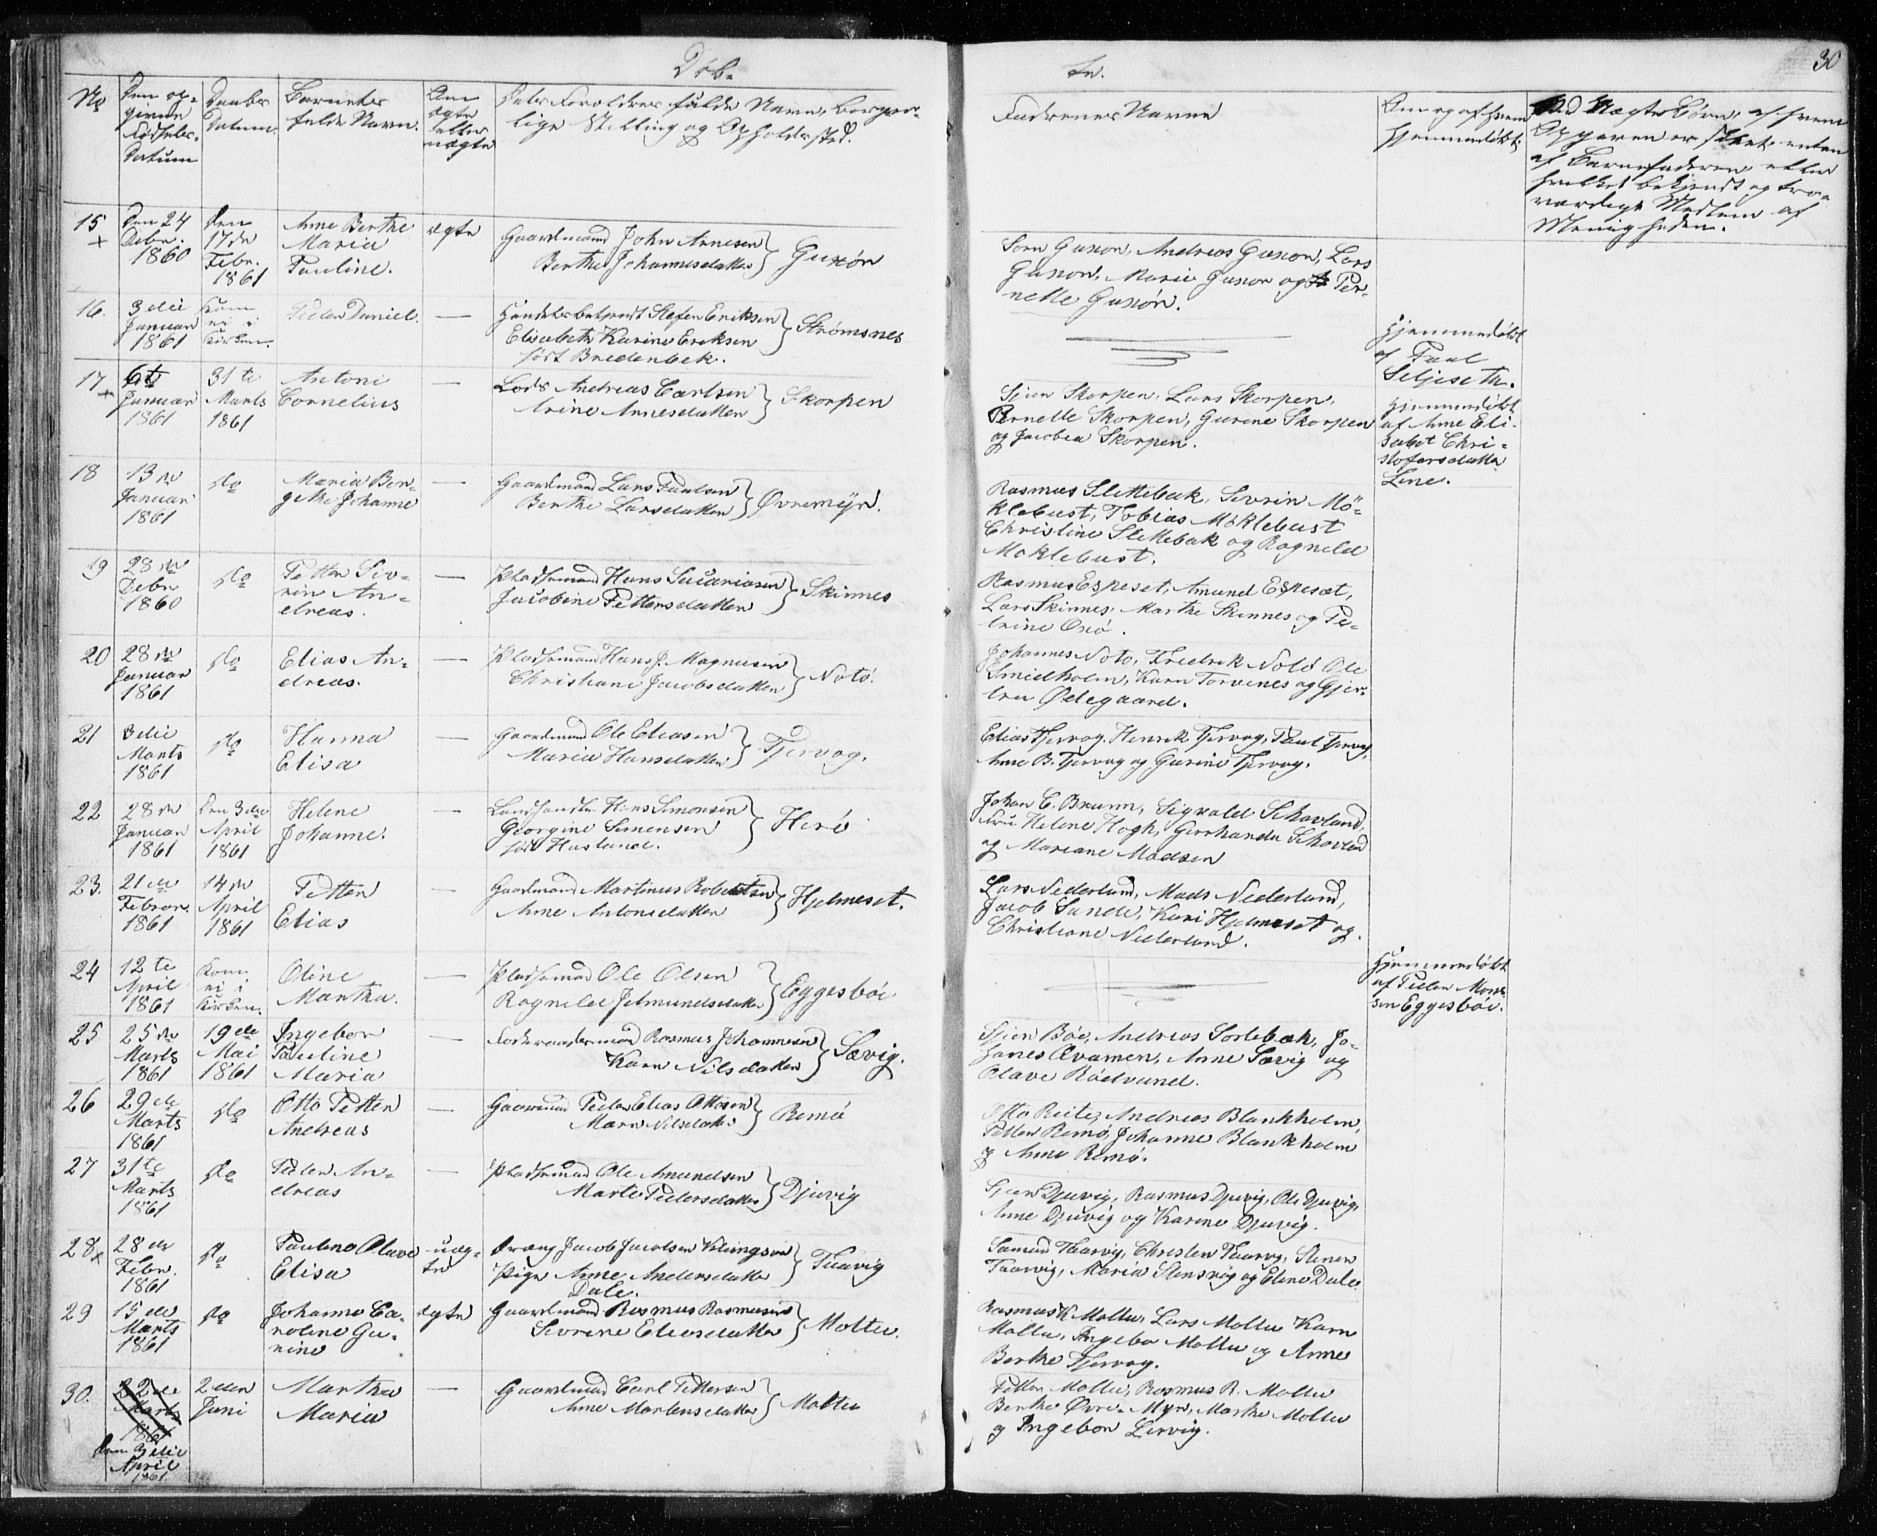 Døb-
te.
30
No
Den op-
givne
Fødsels-
Datum
Daabs
Datum.
Barnets
fulde Navn.
Om
ægte
eller
uægte
Forældres fulde Navn, borger-
lige Stilling og Opholdssted.
Faddernes Navne
Hjemmedøbt
Ved Uægte Børn, af hvem
Opgaven er skeet, enten
af Barnefaderen eller
hvilket bekjendt og tro-
værdigt Medlem af
Menigheden.
15
Den 24
Debr.
1860
Den
17de
Febr.
1861
Anne Berthe
Maria
Pauline.
ægte
Gaardmand John Arnesen
Berthe Johannesdatter
Gurskøn
Andreas
Lars
Marie
og Per-
nelle
16.
3die
Januar
1861
Kom
ei i
Kirken.
Peder Daniel.
—
Handelsbetjendt Stefen Eriksen
Elisabeth Karine Eriksen
født Bredenbek.
Strømsnes
Hjemmedøbt
af Paul
Seljeseth.
17
6te
Januar
1861
31te
Marts
1861
Antoni
Cornelius
—
Lods Andreas Carlsen
Arine Arnesdatter
Skorpen
Sjur Skorpen, Lars Skorpen,
Pernelle Skorpen, Gurine Skorpen
og Jacobea Skorpen.
Hjemmedøbt
af Anne Eli-
sabet Chri-
stofersdatter
Line.
18
13de
Januar
1861
do
Maria Ber-
gethe Johanne
—
Gaardmand Lars Paulsen
Berthe Larsdatter
Øvremyr.
Rasmus Slettebak, Sevrin Mö-
klebust, Tobias Möklebust
Christine Slettebak og Ragnild
Moklebust.
19
28de
Debr
1860
do
Petter Siv-
rin An-
dreas.
—
Pladsmand Hans Sacariasen
Jacobine Pettersdatter
Skinnes
Rasmus Espeset, Amund Espeset,
Lars Skinnes, Marthe Skinnes og Pe-
trine
20
28de
Januar
1861
do
Elias An-
dreas.
—
Pladsmand Hans J. Magnusen
Christiane Jacobsdatter
Notö.
Johannes Noto, Fredrik Notö Ole
Smidholm, Karn Torvenes og Gjer-
tru Ødegaard.
21
3die
Marts
1861
do
Hanna
Elisa
—
Gaardmand Ole Eliasen
Maria Hansdatter
Tjervag.
Elias Tjervag. Henrik Tjervag, Paul Tjervag,
Anne B. Tjervag og Gurine Tjervag.
22
28de
Januar
1861
Den 3die
April
1861
Helene
Johanne.
—
Landhandler Hans Simonsen
Georgine Simonsen
født Haslund.
Herö
Johan C. Bruun, Sigvald Schavland,
Fru Helene Hogh, Schavland
og Mariane Madsen
23.
21de
Februar.
1861
14de
April
1861
Petter
Elias
—
Gaardmand Martinus Robertsen
Anne Antonsdatter
Hjelmeset.
Lars Nederlund, Mads Nederlund,
Jacob Sande, Kari Hjelmeset og
Christiane Nederlund.
24
12te
April
1861
Kom
ei i
Kirken.
Oline
Martha.
—
Pladsmand Ole Olsen
Ragnild Jetmundsdatter
Eggesböe
Hjemmedøbt
af Peder Mon-
sen Eggesböe.
25
25de
Marts
1861
19de
Mai
1861
Ingebor
Pauline
Maria
—
Rasmus Johannesen
Karn Nilsdatter
Sævig.
Sjur Böe, Andreas Sorlebak, Jo-
hanes Qvamen, Anne Sævig og
Olave Rödsund.
26
29de
Marts
1861
do
Otto Petter
Andreas
—
Gaardmand Peder Elias Ottosen
Maren Nilsdatter
Remö
Otto Reite, Andreas Blankholm,
Petter Remö, Johanne Blankholm
og Anne Remö.
27
31te
Marts
1861
do
Peder An-
dreas
—
Pladsmand Ole Amundsen
Marte Pedersdatter
Djuvig
Sjur Djuvig, Rasmus Djuvig, Ole Djuvig,
Anne Djuvig og Karine Djuvig.
28
28de
Febr.
1861
do
Pauline Olave
Elisa
uæg-
te
Dræng Jacob Jacobsen Klungsøir
Pige Anne Andersdatter
Dale.
Taarvig
Samund Taarvig, Christen Taarvig, Stener
Taarvig, Maria Stensvig og Eline Dale
29
15de
Marts
1861
do
Johanne Ca-
roline Gu-
rine
ægte
Gaardmand Rasmus Rasmusen
Severine Eliasdatter
Moltu.
Rasmus K. Moltu, Lars Moltu Karn
Moltu, Ingebor Moltu og Anne
Berthe Tjervag.
30.
22de
Marts
1861
Den 3die
April
1861.
2den
Juni
Martha
Maria
—
Gaardmand Carl Pettersen
Anne Martensdatter
Moltu
Petter Moltu, Rasmus R. Moltu
Berthe Øvre-Myr, Marthe Moltu
og Ingebor Lervig.